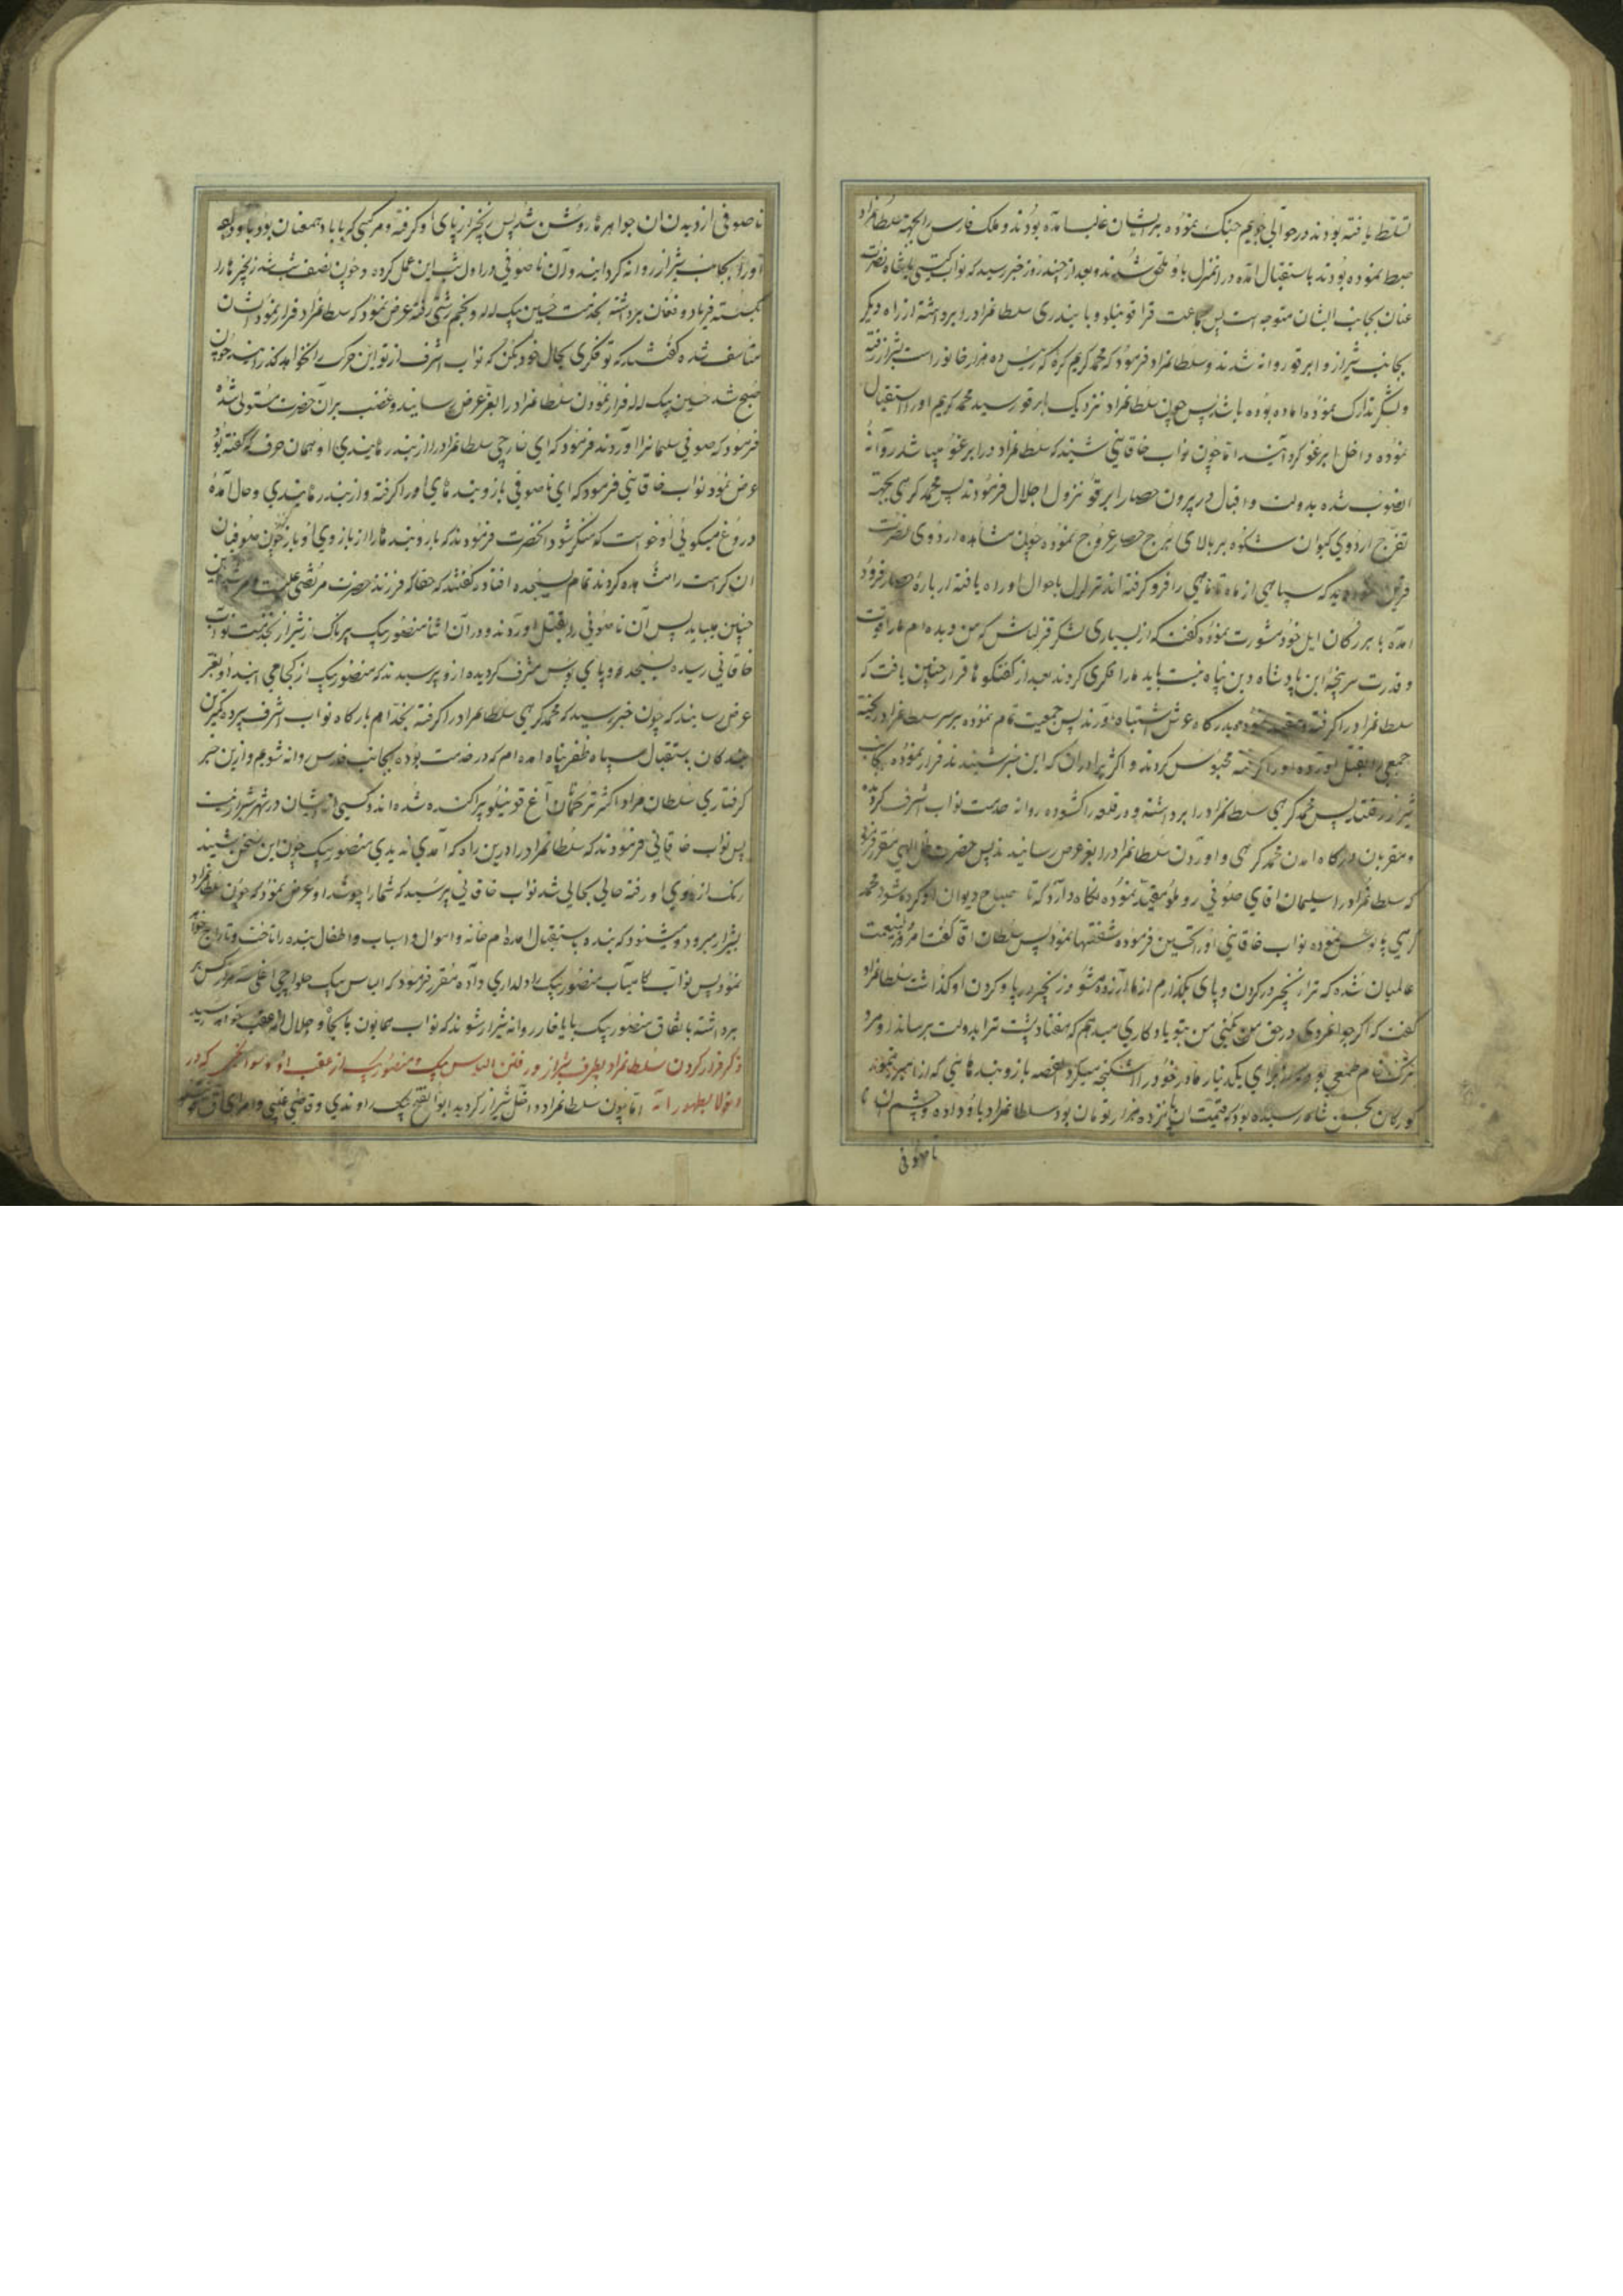 تسلّط یافته بودند در حوالی جویم جنک نموده بریشان غالب آمده بودند و ملک فارس را بجهة سلطانمراد
ضبط نموده بودند باستقبال امده در انمنزل باو ملحق شدند و بعد از چند روز خبر رسید که نواب کیتی پناه نصرت
عنان بجانب ایشان متوجه است پس جماعت قراقوینلو و بایندری سلطانمراد را برداشته از راه دیکر
بجانب شیراز و ابرقو روانه شدند و سلطانمراد فرمود که محمد کریم کره که رئیس ده هزار خانوار است بشیراز رفته
و لشکر تدارک نموده اماده بوده باشد پس چون سلطانمراد نزدیک بابرقو رسید محمد کریم او را استقبال
نموده داخل ابرغو کردانید اما چون نواب خاقانی شنید که سلطانمراد در ابرغو میباشد روانهٔ
انصوب شده بدولت و اقبال در بیرون حصار ابرقو نزول اجلال فرمودند پس محمد کرهی بجهة
تفرّج اردوی کیوان شکوه بر بالای برج حصار عروج نموده چون مشاهده اردوی نصرت
قرین نموده دید که سپاهی از ماه تا ماهی را فرو کرفته اند تزلزل باحوال او راه یافته از بارهٔ حصار فرود
امده با بزرکان ایل خود مشورت نموده کفت که از بسیاری لشکر قزلباش که من دیده ام ما را قوت
و قدرت سرپنجه این پادشاه دین پناه نیست باید ما را فکری کردند بعد از کفتکوها قرار چنین یافت که
سلطانمراد را کرفته مقید نموده بدرکاه عرش اشتباه آورند پس جمعیت تمام نموده بر سر سلطانمراد ریخته
جمعی را بقتل آورده او را کرفته محبوس کردند و اکثر برادران که این خبر شنیدند فرار نموده بجانب
شیراز رفتند پس محمد کرهی سلطانمراد را برداشته و در قلعه را کشوده روانه خدمت نواب اشرف کردید
و مقربان درکاه امدن محمد کرهی و اوردن سلطانمراد را بعز عرض رسانیدند پس حضرت ظل الهی مقرر فرمود
که سلطانمراد را سلیمان اقای صوفی روملو مقید نموده نکاه دارد که تا صباح دیوان او کرده شود محمد
کرهی پابوس نموده نواب خاقانی او را تحسین فرموده شفقتها نمود پس سلطان اقا کفت امروز نعمت
عالمیان شده که ترا زنجیر در کردن و پای بکذارم از ما آزرده مشو و زنجیر در پا و کردن او کذاشت سلطانمراد
کفت که اکر جوانمردی در حق من بکنی من بتو یادکاری میدهم که هفتاد پشت ترا بدولت برساند و مرد
ترک تمام طمعی بود و از برای یکدینار مادر خود را شکنجه میکرد القصه بازوبندهائی که از امیر تیمور
کورکان بحسن شاه رسیده بود که قیمت ان پانزده هزار تومان بود سلطانمراد باو داده و چشم ان نا
ناصوفی
ناصوفی از دیدن ان جواهرها روشن شد پس زنجیر از پای او کرفته و مرکبی که با باد همعنان بود باو
آورده بجانب شیراز روانه کردانید و آن ناصوفی در اول شب این عمل کرده و چون نصف شب شد زنجیرها را
شکسته فریاد و فغان برداشته بخدمت حسین بیک لله و نجم رشتی رفته عرض نمود که سلطانمراد فرار نمود ایشان
متاسف شده کفتند که تو فکری بحال خود بکن که نواب اشرف از تو این حرکت را نخواهد کذرانید چون
صبح شد حسین بیک لله فرار نمودن سلطانمراد را بعز عرض رسانید و غضب بر آن حضرت مستولی شده
فرمود که صوفی سلیمانرا اوردند فرمود که ای خارجی سلطانمراد را از بند رهانیدی او همان حرف که کفته بود
عرض نمود نواب خاقانی فرمود که ای ناصوفی بازوبندهای او را کرفته و از بند رهانیدی و حال آمده
دروغ میکوئی او خواست که منکر شود انحضرت فرمودند که بازوبندها را از بازوی او باز چون صوفیان
ان کرامت را مشاهده کردند تمام بسجده افتادند کفتند که حقا که فرزند حضرت مرتضی علیست و مرشد
چنین میباید پس آن ناصوفی را بقتل آوردند و در آن اثنا منصور بیک پرناک از شیراز بخدمت نواب
خاقانی رسیده بسجده و پای بوس مشرف کردیده ازو پرسیدند که منصور بیک از کجا می ایند او بعز
عرض رسانید که چون خبر رسید که محمد کرهی سلطانمراد را کرفته بخدام بارکاه نواب اشرف سپرده
بندکان باستقبال سپاه ظفر پناه امده ام که در خدمت بوده بجانب فارس روانه شویم و ازین خبر
کرفتاری سلطان مراد اکثر ترکمانان آغ قوینلو پراکنده شده اند و کسی از ایشان در شهر شیراز نیست
پس نواب خاقانی فرمودند که سلطانمراد را درین راه که آمدی ندیدی منصور بیک چون این سخن بشنید
رنک از روی او رفته حالی بحالی شد نواب خاقانی پرسید که شما را چه شد او عرض نمود که چون سلطانمراد
بشیراز میرود و میشنود که بنده باستقبال امده ام خانه و اموال و اسباب و اطفال بنده را تاخت و تاراج خواهد
نمود پس نواب کامیاب منصور بیک را دلداری داده مقرر فرمود که الیاس بیک حلواچی اغلی
برداشته باتفاق منصور بیک بایلغار روانه شیراز شوند که نواب همایون با جاه و جلال از عقب خواهد رسید
ذکر فرار کردن سلطانمراد بطرف شیراز و رفتن الیاس بیک و منصور بیک از عقب او و سوانحی که در
اما چون سلطانمراد داخل شیراز کردید ابو الفتح بیک راوندی و قاضی غیبی و امرای آق قوینلو